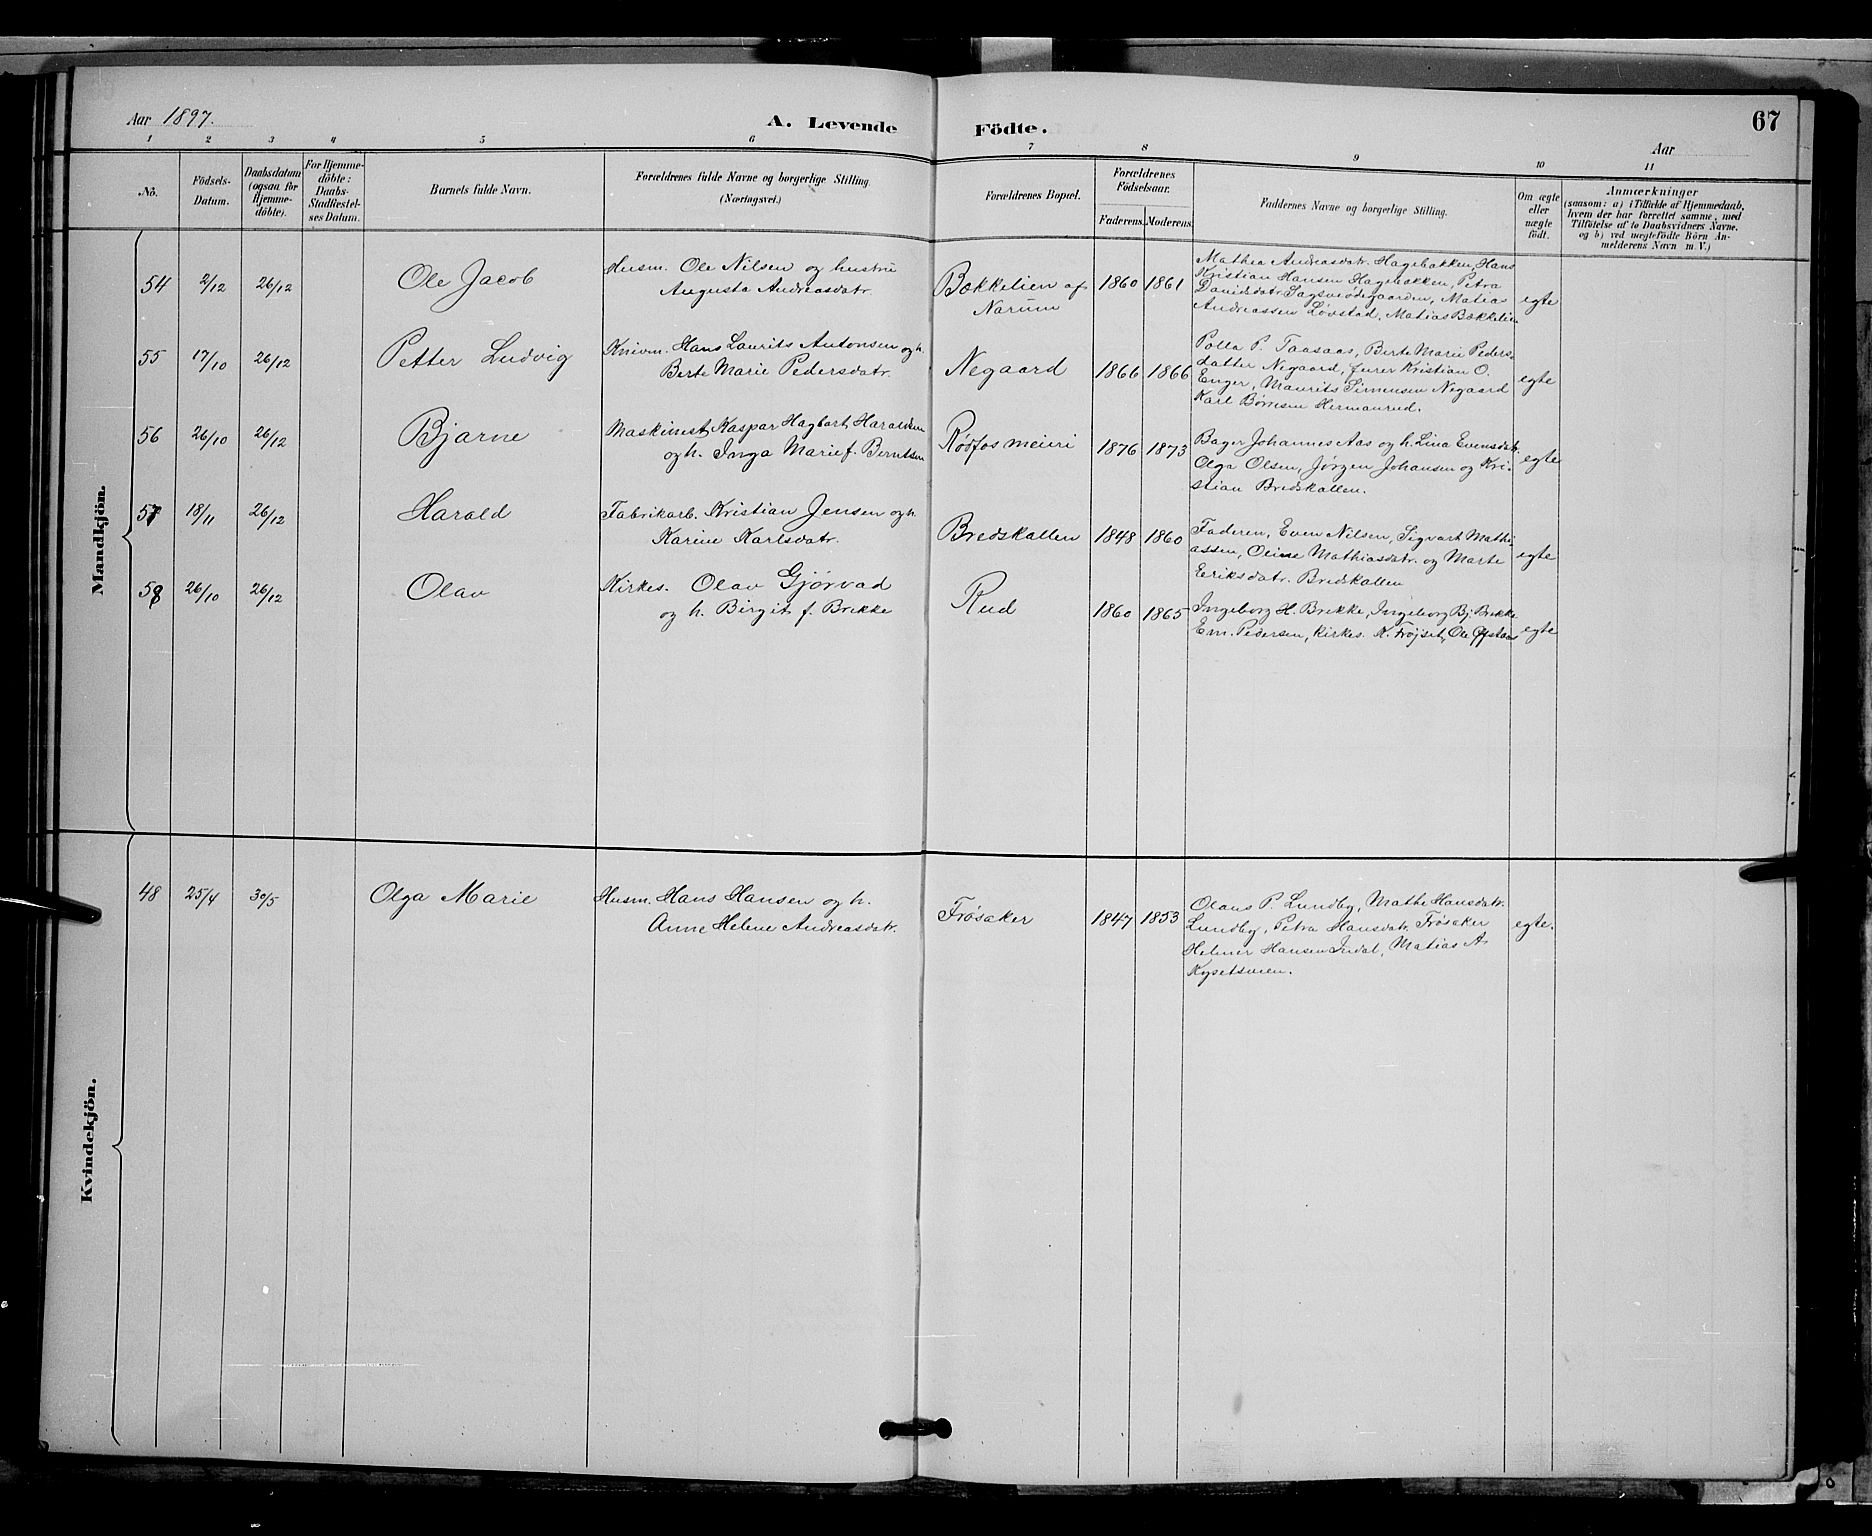 Aar 1897.
A. Levende Födte.
67
Aar
1 2 3 4 5 6 7 8 9 10 11
No.
Födsels-
Datum.
Daabsdatum
(ogsaa for
Hjemme-
döbte).
For Hjemme-
döbte:
Daabs-
Stadfæstel-
ses Datum.
Barnets fulde Navn.
Forældrenes fulde Navne og borgerlige Stilling.
(Næringsvei.)
Forældrenes Bopæl.
Forældrenes
Födselsaar.
Faderens. Moderens.
Faddernes Navne og borgerlige Stilling.
Om ægte
eller
uægte
födt.
Anmærkninger
(saasom: a) i Tilfælde af Hjemmedaab,
hvem der har forrettet samme, med
Tilföielse af to Daabsvidners Navne,
og b) ved uægtefödte Börn An-
melderens Navn m. V.)
Mandkjön.
54 2/12 26/12 Ole Jacob
Husm. Ole Nilsen og hustru
Augusta Andreasdatr.
Bækkelien af
Narum
1860 1861
Mathea Andreasdatr. Hagebakken, Hans
Kristian Hansen Hagebakken, Petra
Davidsdatr. Sagsveødegaarden, Matias
Andreassen Løvstad, Matias Bækkelien
egte
55 17/10 26/12 Petter Ludvig
Knivm. Hans Laurits Antonsen og h.
Berte Marie Pedersdatr.
Negaard
1866 1866
Polla P. Taasaas, Berte Marie Peders-
datter Negaard, furer Kristian O.
Enger, Maurits Simensen Negaard
Karl Børnsen Hermanrud.
egte
56 26/10 26/12 Bjarne
Maskinist Kaspar Hagbart Haraldsen
og h. Inga Marie f. Berntsen
Rødfos meieri
1876 1873
Bager Johannes Aas og h. Lina Evensdatr.
Olga Olsen, Jørgen Johansen og Kri-
stian Bredskallen.
egte
57 18/11 26/12 Harald
Fabrikarb. Kristian Jensen og h.
Karine Karlsdatr.
Bredskallen
1848 1860
Faderen, Even Nilsen, Sigvart Mathi-
assen, Oline Mathiasdatr. og Marte
Eeriksdatr. Bredskallen
egte
58 26/10 26/12 Olav
Kirkes. Olav Gjørvad
og h. Birgit f. Brekke
Rud
1860 1865
Ingeborg H. Brekke, Ingeborg Bj. Brekke
Em. Pedersen, Kirkes. K. Frøjset, Ole
egte
Kvindekjön.
48 25/4 30/5 Olga Marie
Husm. Hans Hansen og h.
Anne Helene Andreasdatr.
Frøsaker
1847 1853
Olaus P. Lundby, Mathe Hansdatr.
Lundby, Petra Hansdatr. Frøsaker
Helmer Hansen Indal, Matias A.
Kysetsveen.
egte.